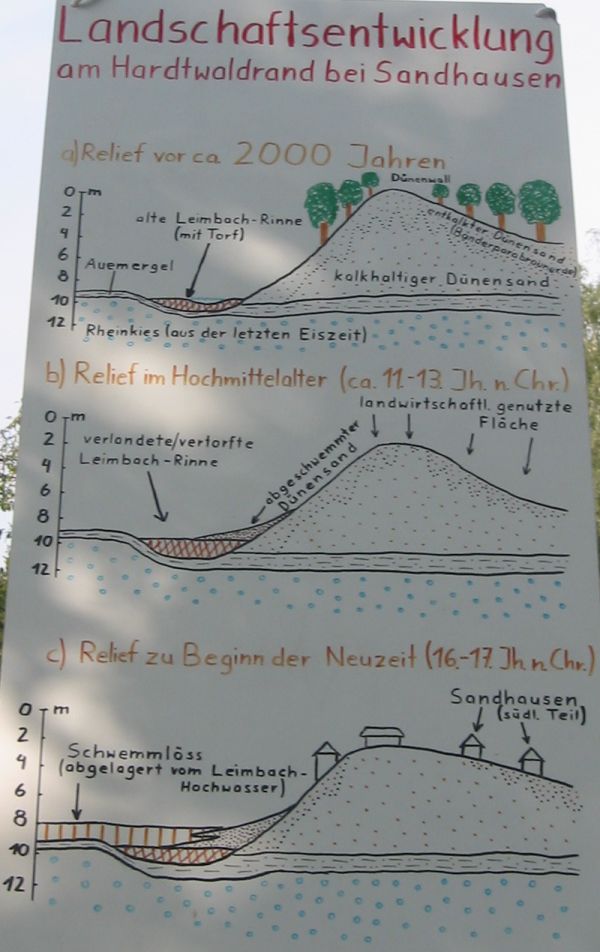 Landschaftsentwicklung
am Hardtwaldrand bei Sandhausen
a) Relief vor ca. 2000 Jahren
0 m
2
4
6
8
10
12
Dünenwall
alte Leimbach-Rinne
(mit Torf)
entkalkter Dünensand
(Bänderparabraunerde)
Auemergel
kalkhaltiger Dünensand
Rheinkies (aus der letzten Eiszeit)
b) Relief im Hochmittelalter (ca. 11.-13. Jh. n. Chr.)
0 m
2
4
6
8
10
12
landwirtschaftl. genutzte
Fläche
verlandete/vertorfte
Leimbach-Rinne
abgeschwemmter
Dünensand
c) Relief zu Beginn der Neuzeit (16.-17. Jh. n. Chr.)
0 m
2
4
6
8
10
12
Sandhausen
(südl. Teil)
Schwemmlöss
(abgelagert vom Leimbach-
Hochwasser)